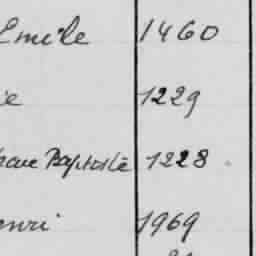 Emile 1460
ie 1229
Baptiste 1228
enri 1969